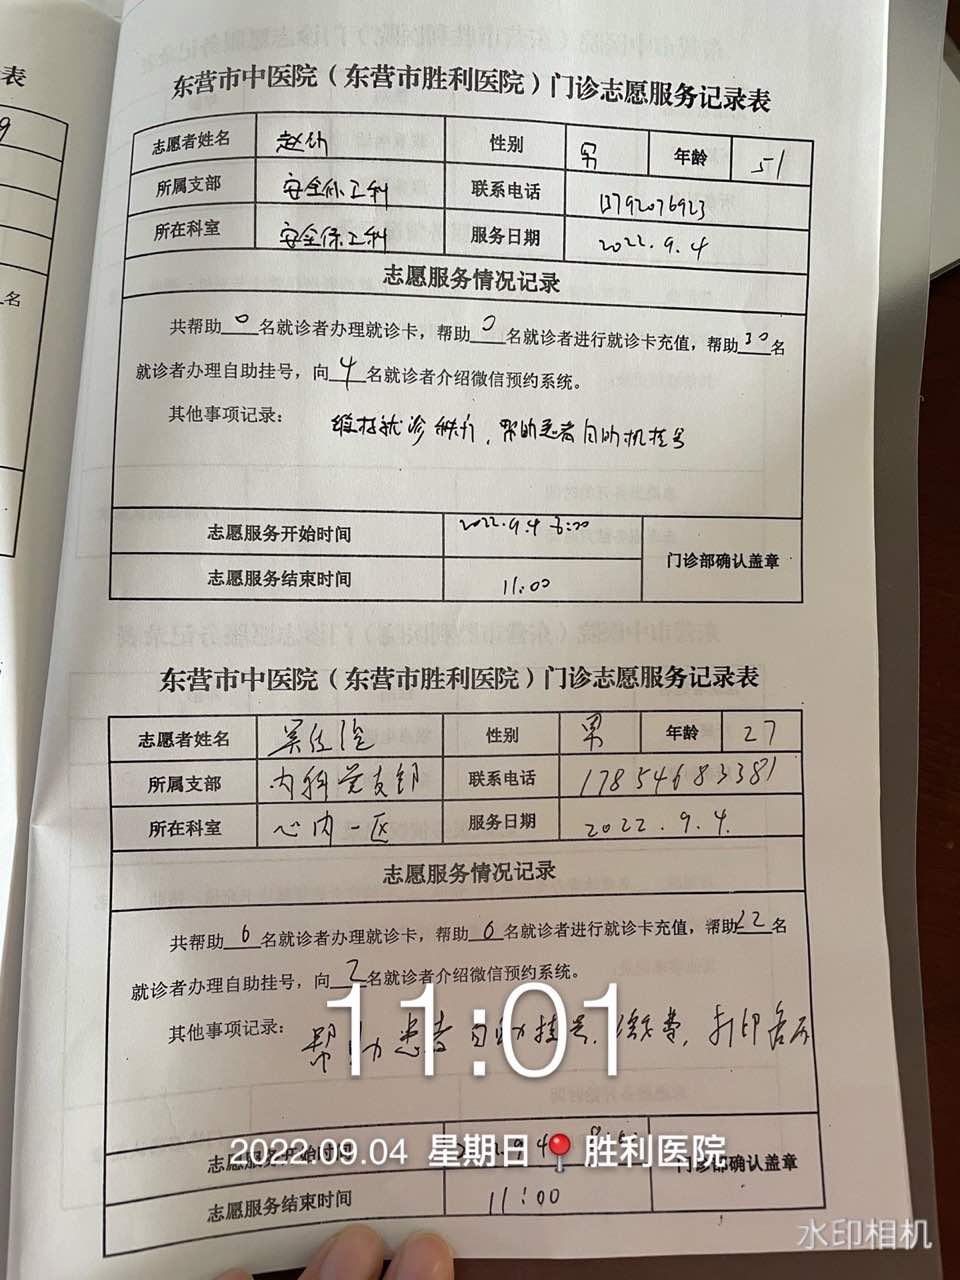 表
9
名
东营市中医院（东营市胜利医院）门诊志愿服务记录表
志愿者姓名 赵 性别 男 年龄 51
所属支部 安全保卫科 联系电话 13792076923
所在科室 安全保卫科 服务日期 2022.9.4
志愿服务情况记录
共帮助0名就诊者办理就诊卡，帮助0名就诊者进行就诊卡充值，帮助30名
就诊者办理自助挂号，向4名就诊者介绍微信预约系统。
其他事项记录： 维持就诊秩序，帮助患者自助机挂号
志愿服务开始时间 2022.9.4 8:00
门诊部确认盖章
志愿服务结束时间 11:00
东营市中医院（东营市胜利医院）门诊志愿服务记录表
志愿者姓名 吴 性别 男 年龄 27
所属支部 内科党支部 联系电话 17854683381
所在科室 心内一区 服务日期 2022.9.4.
志愿服务情况记录
共帮助6名就诊者办理就诊卡，帮助6名就诊者进行就诊卡充值，帮助22名
就诊者办理自助挂号，向2名就诊者介绍微信预约系统。
其他事项记录： 帮助患者自助挂号，缴费，打印
11:01
志愿服务开始时间
2022.09.04 星期日 胜利医院
门诊部确认盖章
志愿服务结束时间 11:00
水印相机